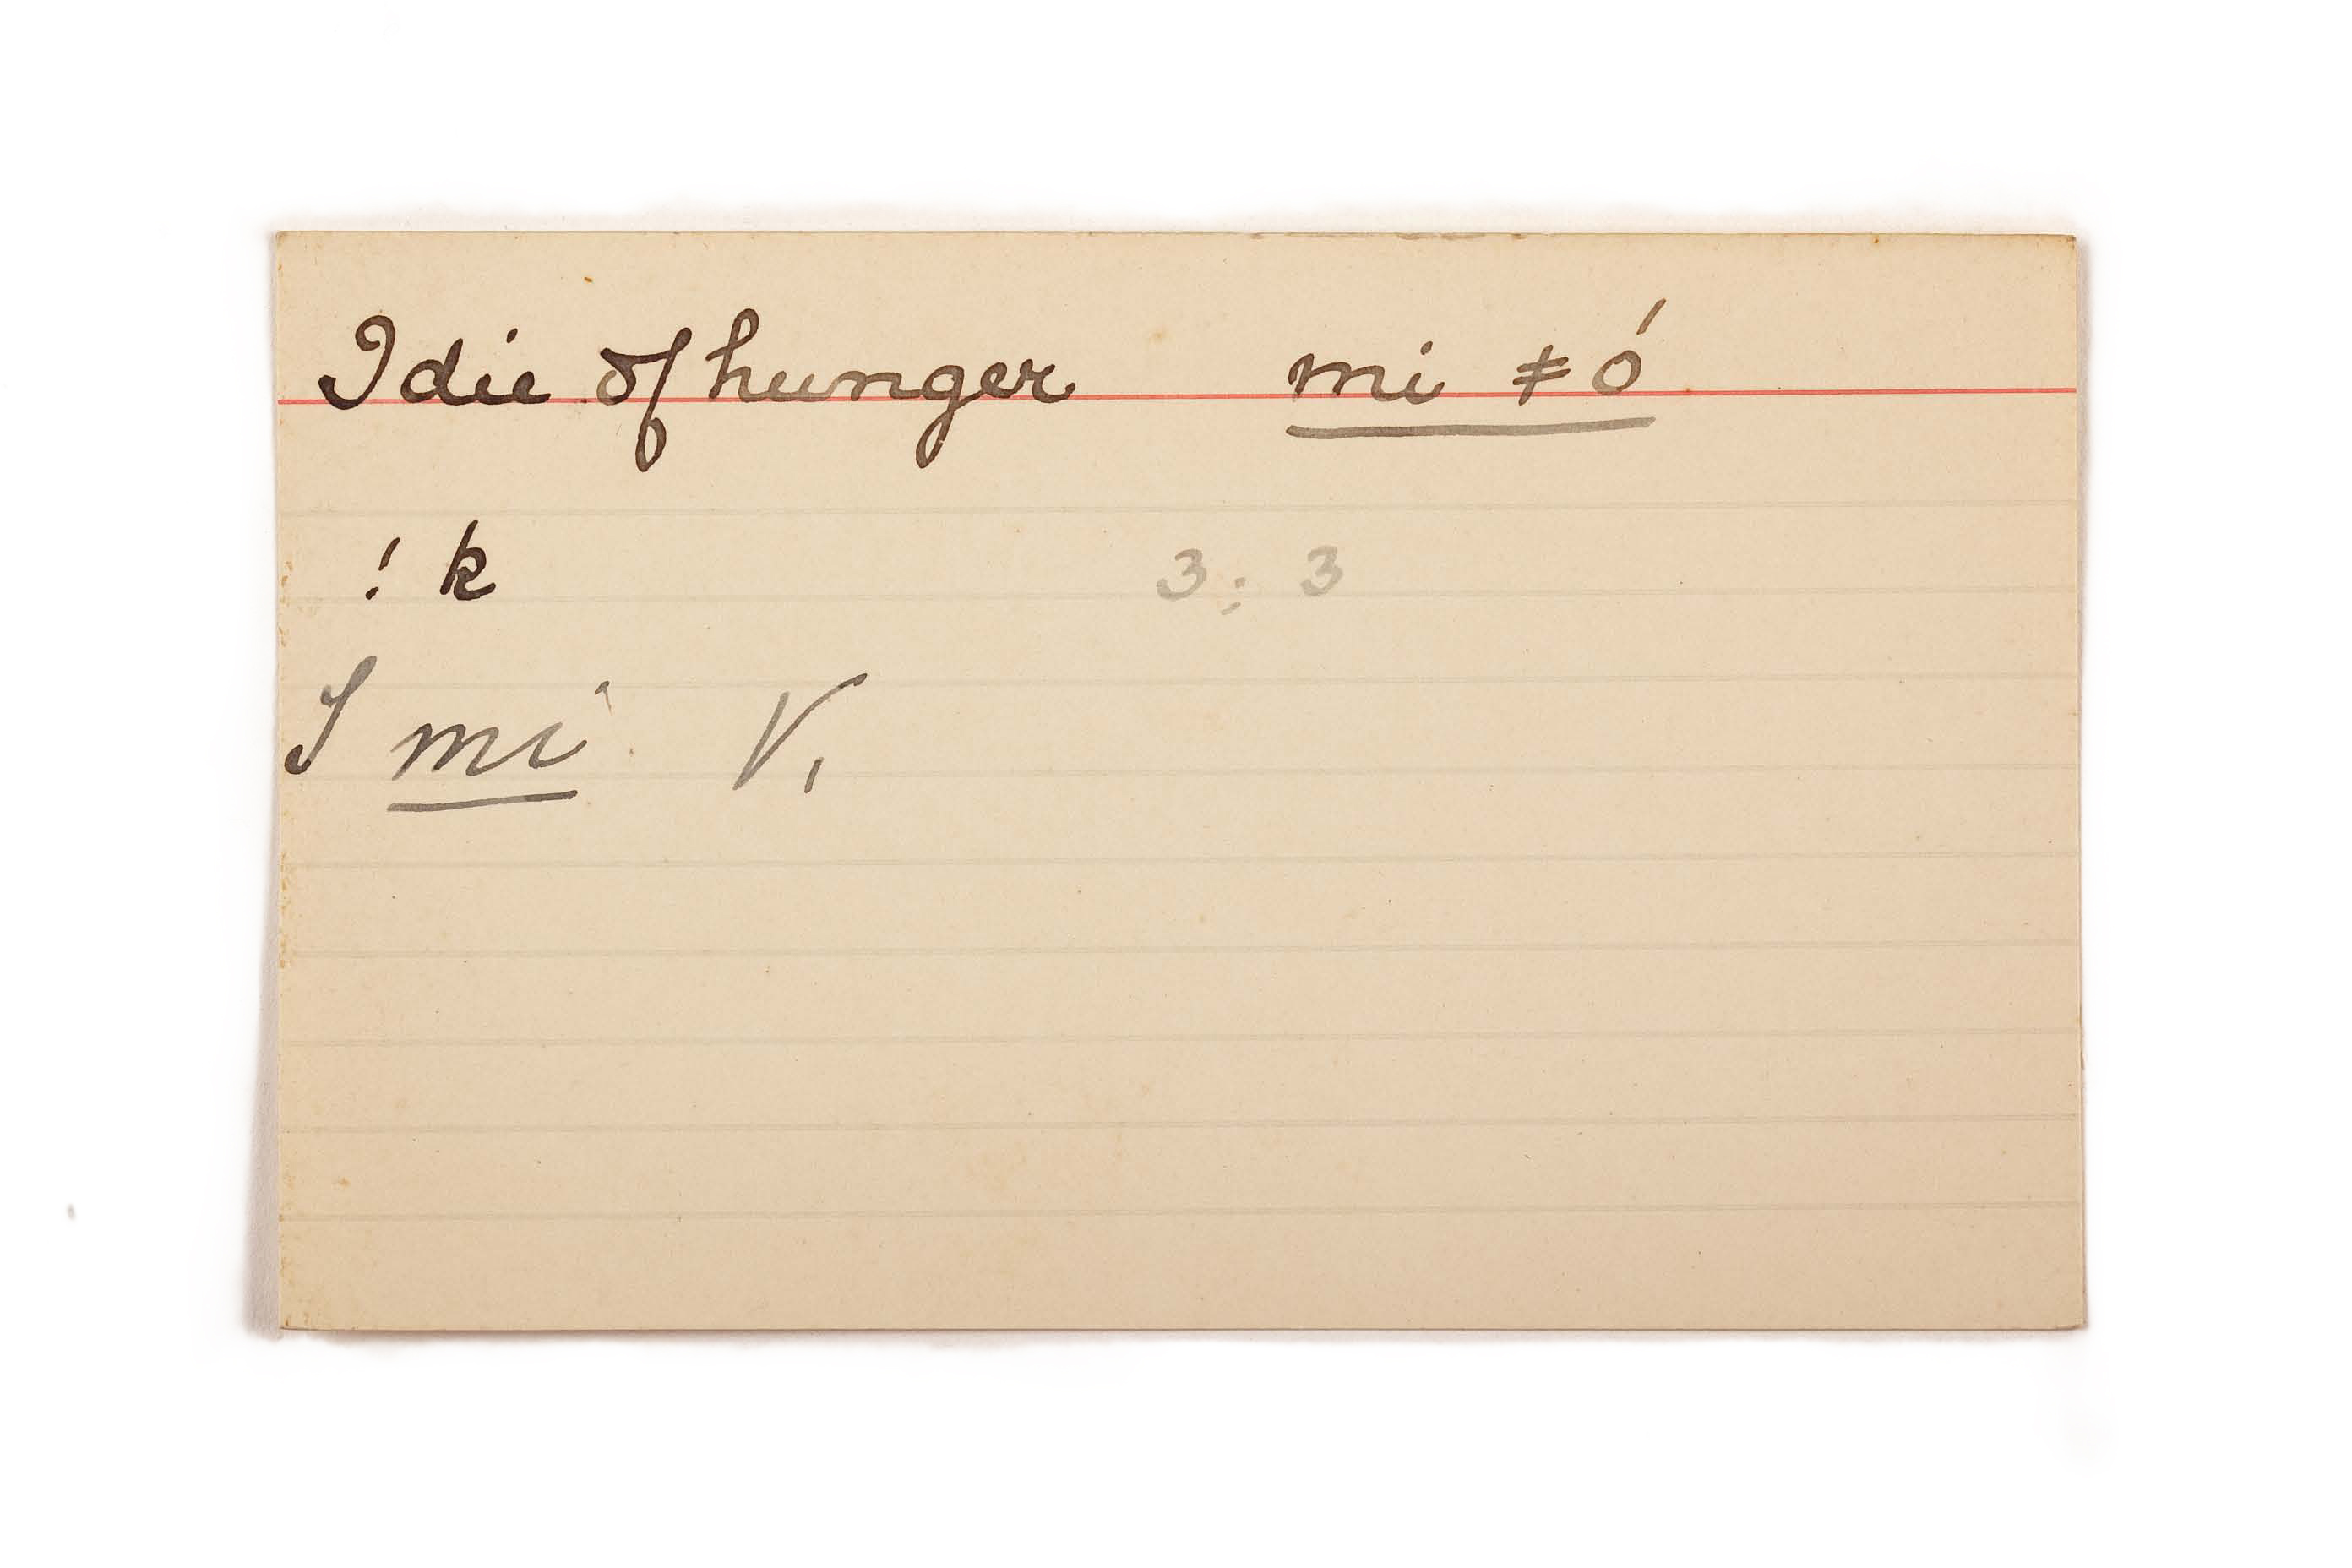 I die of hunger mi ǂó
! k 3; 3
I mi V,